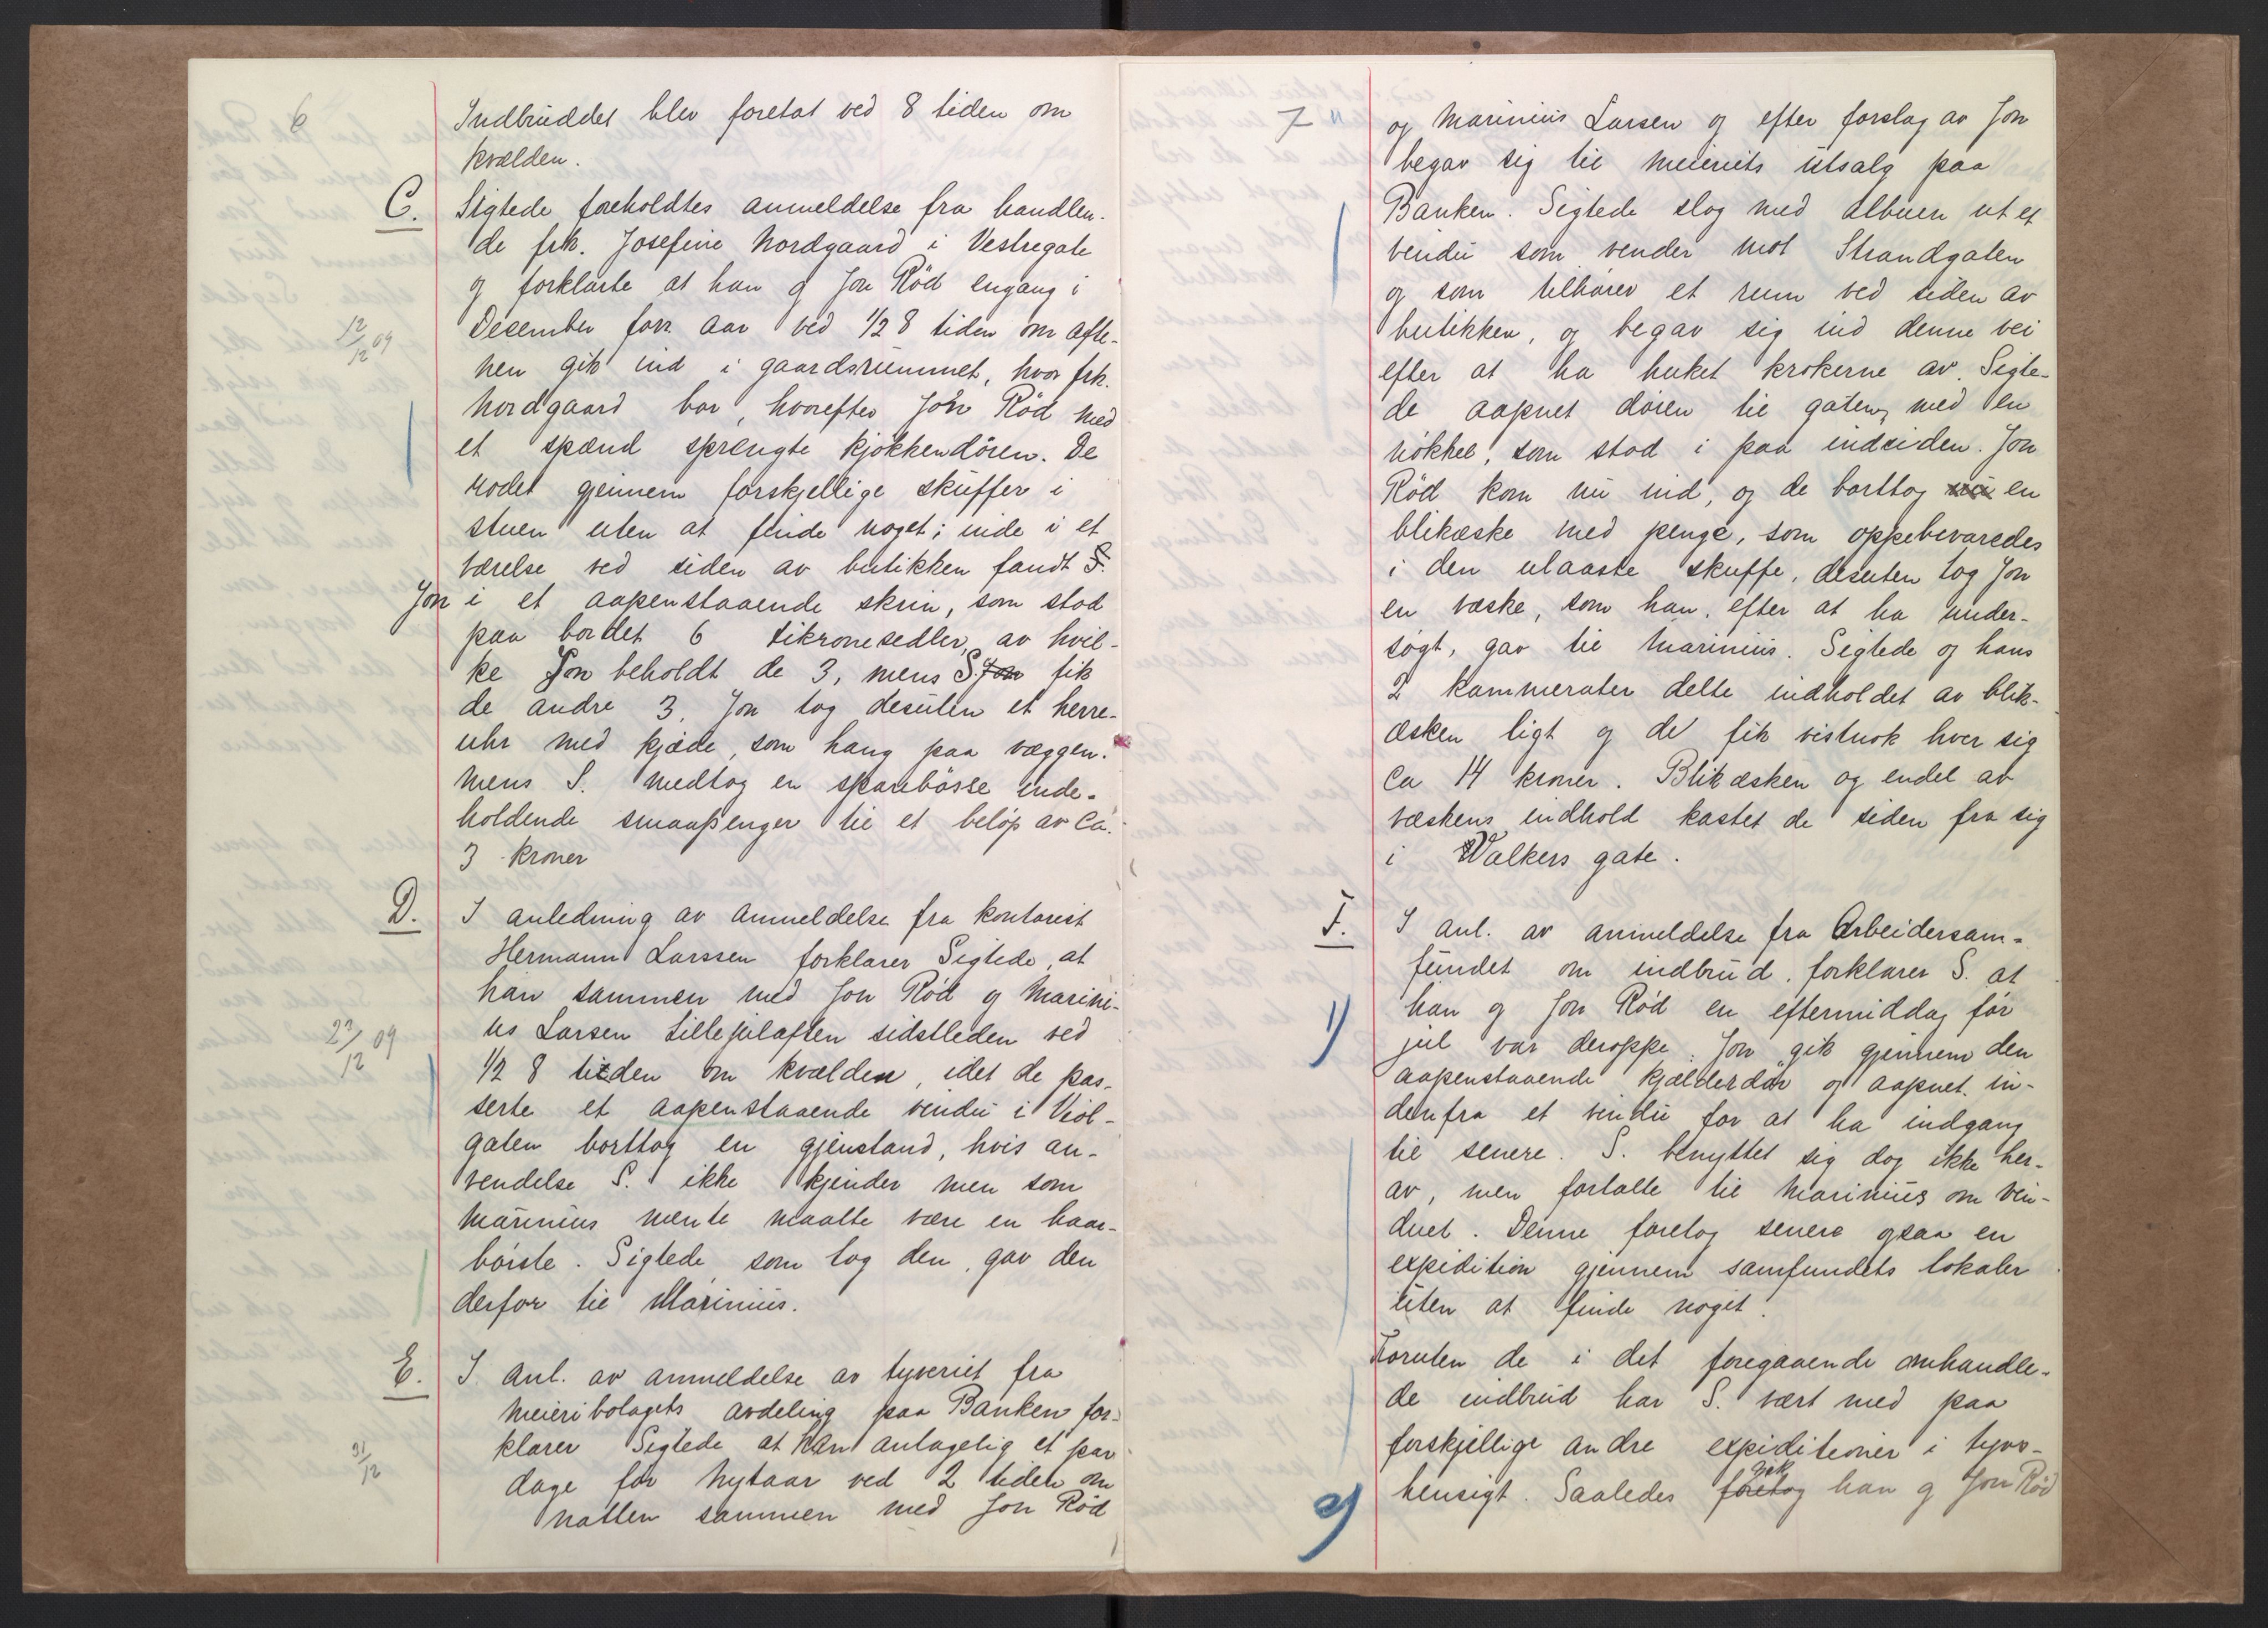 6
Indbruddet blev foretat ved 8 tiden om
kvælden.
C. Sigtede foreholdtes anmeldelse fra handlen-
de frk. Josefine Nordgaard i Vestregate
og forklarte at han og Jon Rød engang i
12/12 09 December forr. aar ved 1/2 8 tiden om afte-
nen gik ind i gaardsrummet, hvor frk.
Nordgaard bor, hvorefter Jon Rød med
et spænd sprengte kjøkkendøren. De
rodet gjennem forskjellige skuffer i
stuen uten at finde noget; inde i et
værelse ved siden av butikken fandt S.
Jon i et aapenstaaende skrin, som stod
paa bordet 6 tikronesedler, av hvil-
ke Jon beholdt de 3, mens S. Jon fik
de andre 3. Jon tog desuten et herre-
uhr med kjæde, som hang paa væggen.
mens S. medtog en sparebøsse inde-
holdende smaapenger til et beløp av ca.
3 kroner
D. I anledning av anmeldelse fra kontorist
Hermann Larssen forklarer Sigtede, at
han sammen med Jon Rød og Marini-
us Larsen Lillejulaften sidstleden ved
23/12 09 1/2 8 tiden om kvælden, idet de pas-
serte et aapenstaaende vindu i Viol-
gaten borttog en gjenstand, hvis an-
vendelse S. ikke kjender men som
Marinius mente maatte være en haar-
børste. Sigtede, som tog den, gav den
derfor til Marinius.
E. I anl. av anmeldelse av tyveriet fra
meieribolagets avdeling paa Banken for-
klarer Sigtede at han antagelig et par
31/12 dage før Nytaar ved 2 tiden om
natten sammen med Jon Rød
7
og Marinius Larsen og efter forslag av Jon
begav sig til meieriets utsalg paa
Banken. Sigtede slog med albuen ut et
vindu som vender mot Strandgaten
og som tilhører et rum ved siden av
butikken, og begav sig ind denne vei
efter at ha huket krokerne av. Sigte-
de aapnet døren til gaten, med en
nøkkel, som stod i paa indsiden. Jon
Rød kom nu ind, og de borttog nu en
blikæske med penge, som oppebevaredes
i den ulaaste skuffe, desuten tog Jon
en væske, som han, efter at ha under-
søgt, gav til Marinius. Sigtede og hans
2 kammerater delte indholdet av blik-
æsken ligt og de fik vistnok hver sig
ca 14 kroner. Blikæsken og endel av
væskens indhold kastet de siden fra sig
i Walkers gate.
F. I anl. av anmeldelse fra Arbeidersam-
fundet om indbrud, forklarer S. at
1) han og Jon Rød en eftermiddag før
jul var deroppe. Jon gik gjennem den
aapenstaaende kjælderdør og aapnet in-
denfra et vindu for at ha indgang
til senere. S. benyttet sig dog ikke her-
av, men fortalte til Marinius om vin-
duet. Denne foretog senere ogsaa en
expidition gjennem samfundets lokaler
uten at finde noget.
Foruten de i det foregaaende omhandle-
de indbrud har S. vært med paa
forskjellige andre expiditioner i tyvs-
gik
2) hensigt. Saaledes foretog han og Jon Rød